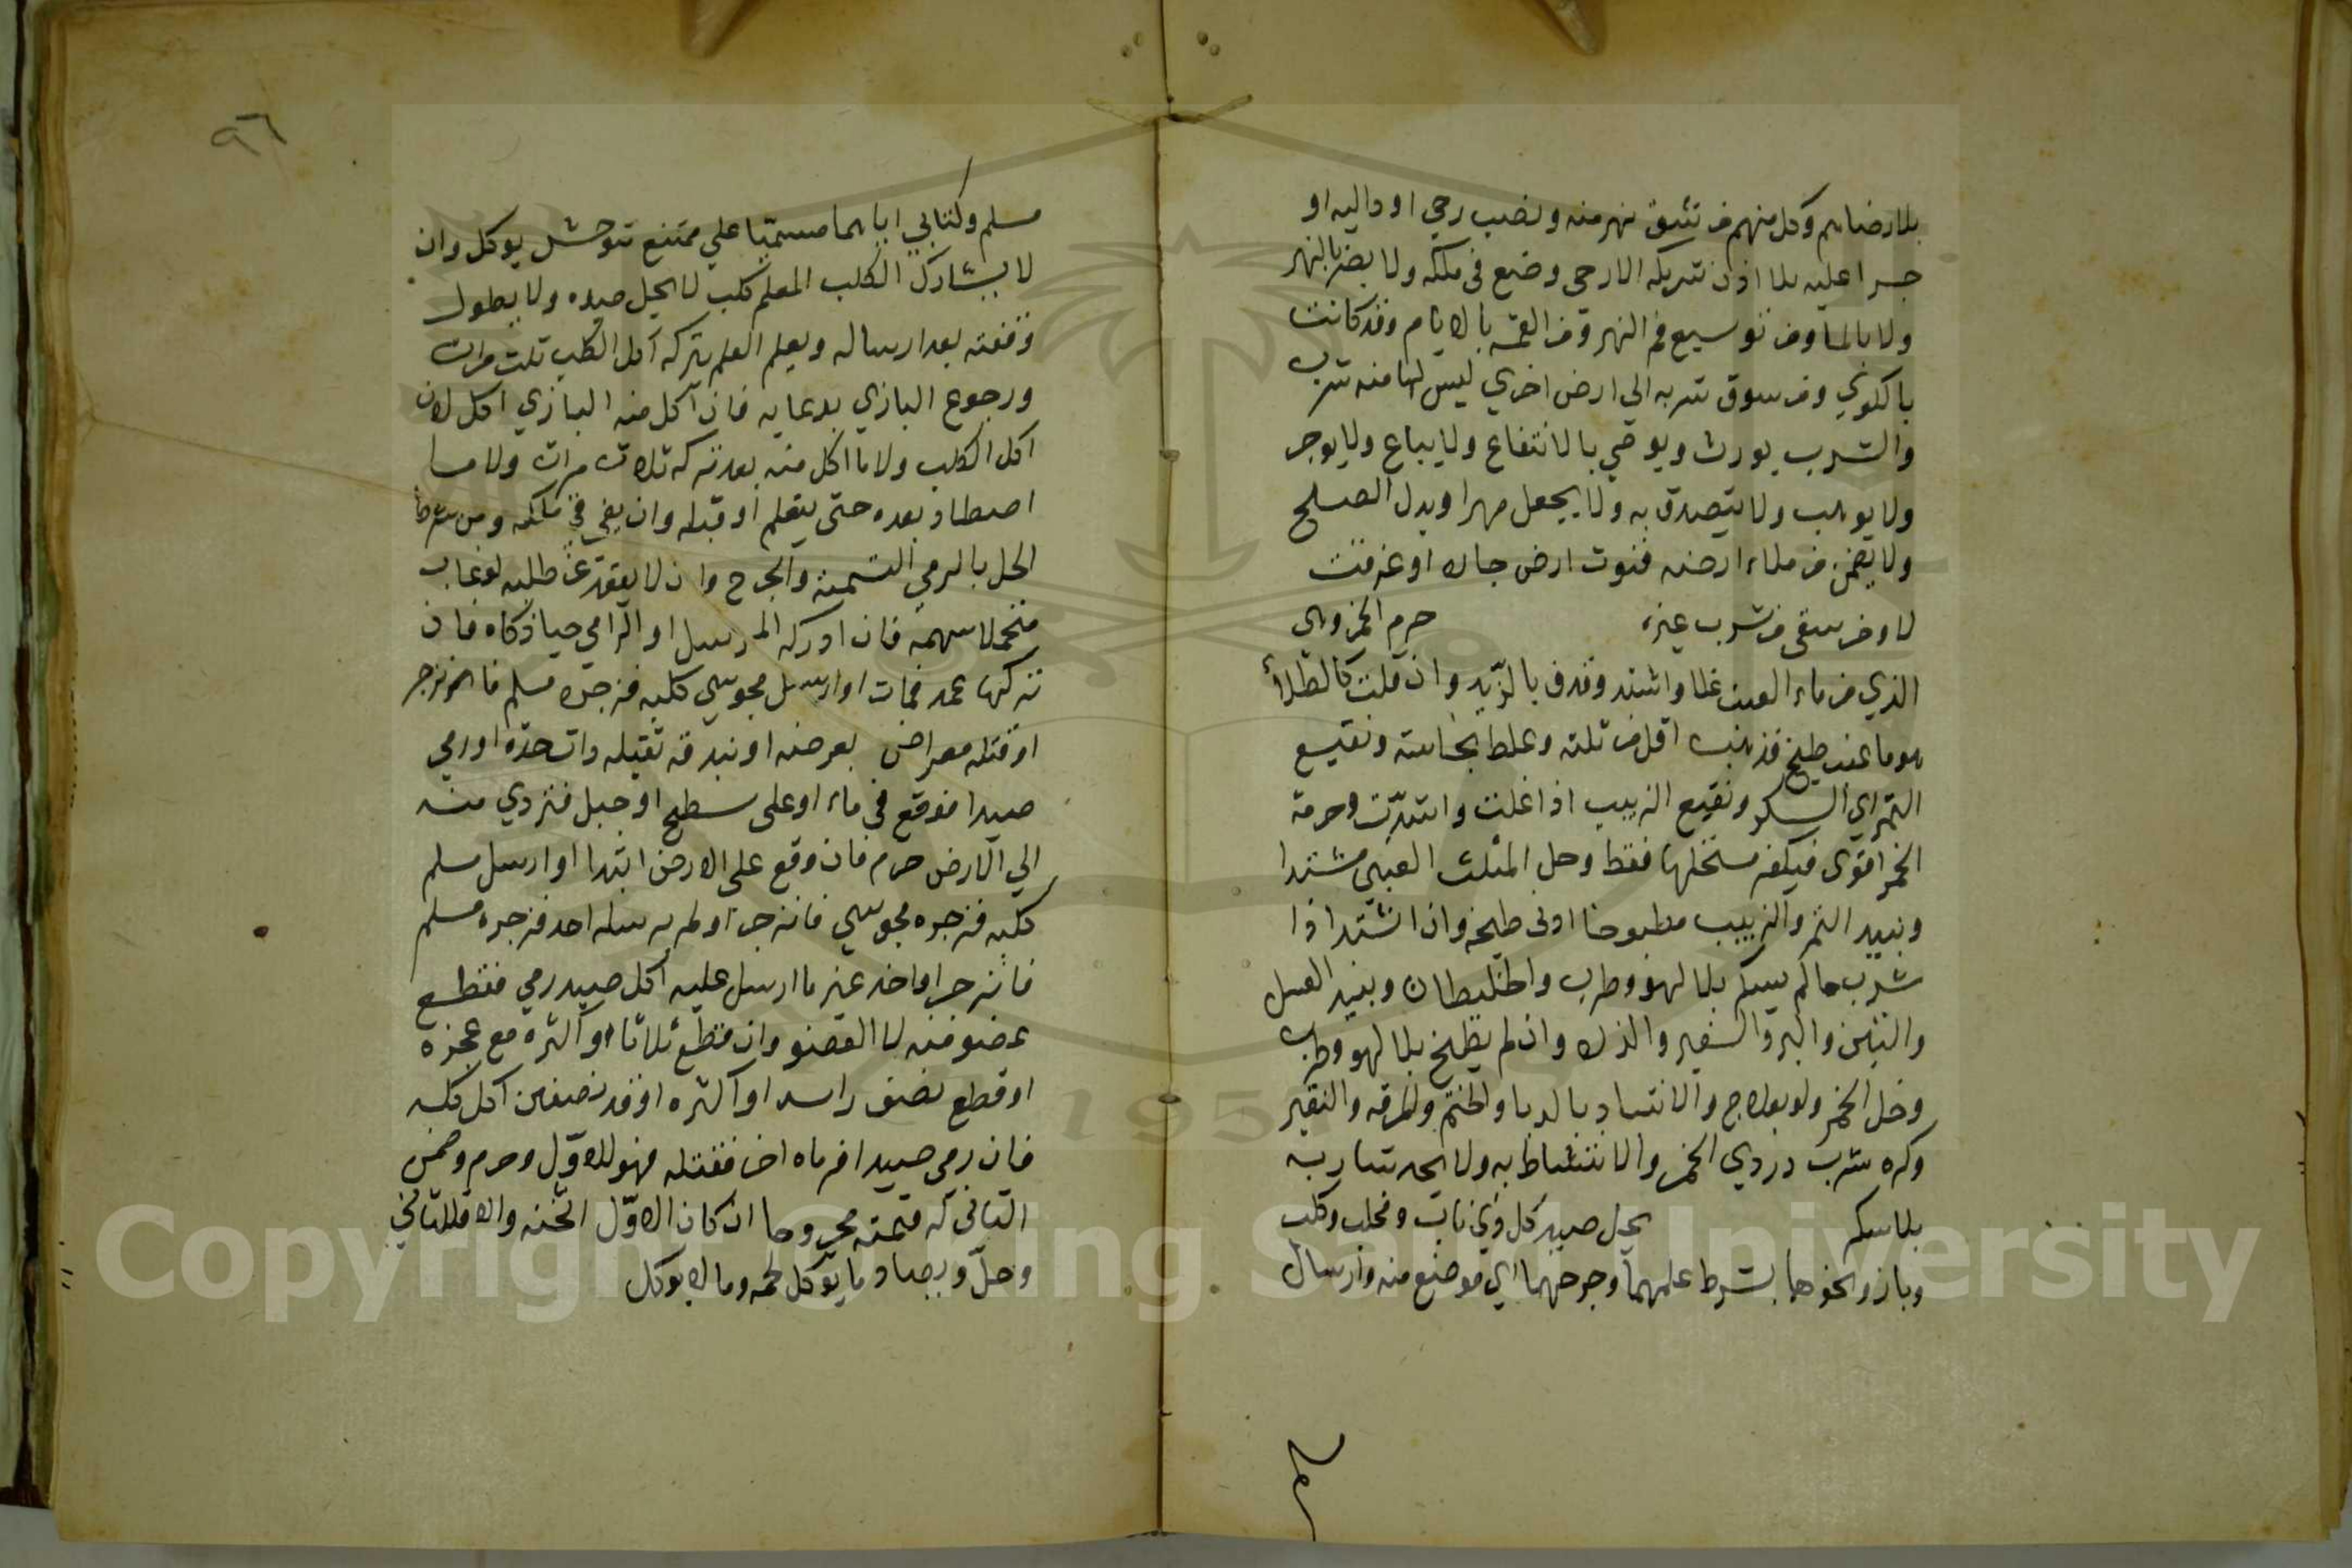 بلا رضاهم وكل منهم من شق نهر منه ونصب رحي او داليه او
جسرا عليه بلا اذن شريكه الا رحى وضع في ملكه ولا يضر بالنهر
ولا بالما ومن توسيع فم النهر ومن القسمة بالايام وقد كانت
بالكوي ومن سوق شربه الى ارض اخري ليس لها منه شرب
والشرب يورث ويوصي بالانتفاع ولا يباع ولا يوجر
ولا يوهب ولا يتصدق به ولا يجعل مهرا وبدل الصلح
ولا يضمن من ملاء ارضه فنزت ارض جاره او غرقت
لا من سقى من شرب غيره حرم الخمر وهي
الذي من ماء العنب غلا واشتد وقذف بالزبد وان قلت كالطلاء
هو ما عنب طبخ فذهب اقل من ثلثه وغلظ نجاسته ونقيع
التمر اي السكر ونقيع الزبيب اذا غلت واشتدت وحرمة
الخمر اقوى فيكفر مستحلها فقط وحل المثلث العنبي مشتدا
ونبيد التمر والزبيب مطبوخا ادنى طبخه وان اشتد اذا
شرب ما لم يسكر بلا لهو وطرب والخليطان ونبيد العسل
والتين والبر والشعير والذره وان لم يطبخ بلا لهو وطرب
وخل الخمر ولو بعلاج والانتباد بالدبا والحنتم والمزفه والنقير
وكره شرب دردي الخمر والامتشاط به ولا يحد شاربه
بلا سكر يحل صيد كل ذي ناب ومخلب وكلب
وباز ونحوهما بشرط علمهما وجرحهما اي موضع منه وارسال
مسلم
٩٦
مسلم وكتابي اياهما مسميا علي ممتنع متوحش يوكل وان
لا يشارك الكلب المعلم كلب لا يحل صيده ولا يطول
وقفته بعد ارساله ويعلم المعلم بتركه اكل الكلب ثلث مرات
ورجوع البازي بدعايه فان اكل منه البازي اكل لا ان
اكل الكلب ولا ما اكل منه بعد تركه ثلاث مرات ولا ما
اصطاد بعده حتى يتعلم او قبله وان بقي في ملكه ومن شرط
الحل بالرمي التسمية والجرح وان لا يقعد عن طلبه لو غاب
متحملا سهمه فان ادركه المرسل او الرامي حيا ذكاه فان
تركها عمد فمات او ارسل مجوسي كلبه فزجره مسلم فانزجر
او قتله معراض بعرضه او بندقة ثقيله ذات حدة او رمي
صيدا فوقع في ماء او على سطح او جبل فتردي منه
الي الارض حرم فان وقع على الارض ابتدا او ارسل مسلم
كلبه فزجره مجوسي فانزجر او لم يرسله احد فزجره مسلم
فانزجر او اخذ غير ما ارسل عليه اكل صيد رمي فقطع
عضو منه لا العضو وان قطع ثلاثا او اكثره مع عجزه
او قطع نصف راسه او اكثره او قد نصفين اكل كله
فان رمي صيدا فرماه اخر فقتله فهو للاول وحرم وضمن
الثاني له قيمته مجروحا ان كان الاول اثخنه والا فللثاني
وحل ويصاد ما يوكل لحمه وما لا يوكل